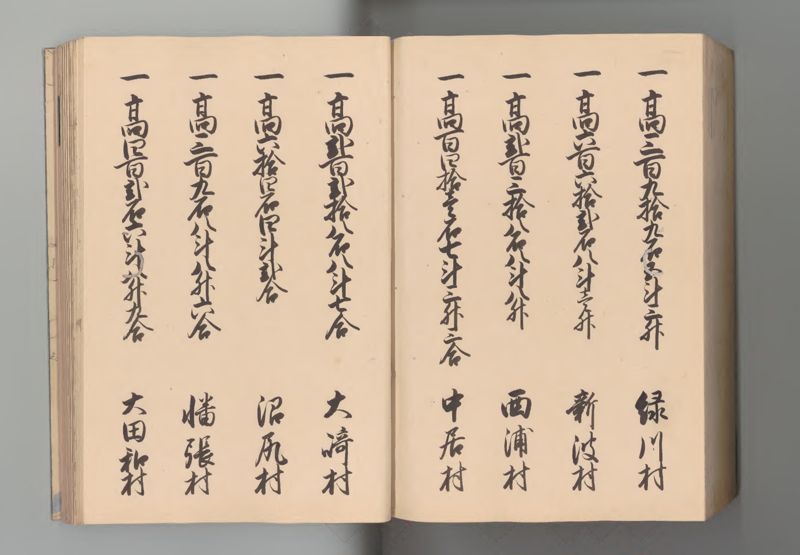 一高三百九拾九石五斗三升 緑川村
一高六百六拾弐石八斗壱升 新波村
一高弐百三拾八石八斗八升 西浦村
一高百四拾壱石七斗三升三合 中居村
一高弐百弐拾八石八斗七合 大﨑村
一高六拾四石四斗弐合 沼尻村
一高三百九石八斗八升六合 幡張村
一高四百弐石六斗 升九合 大田和村